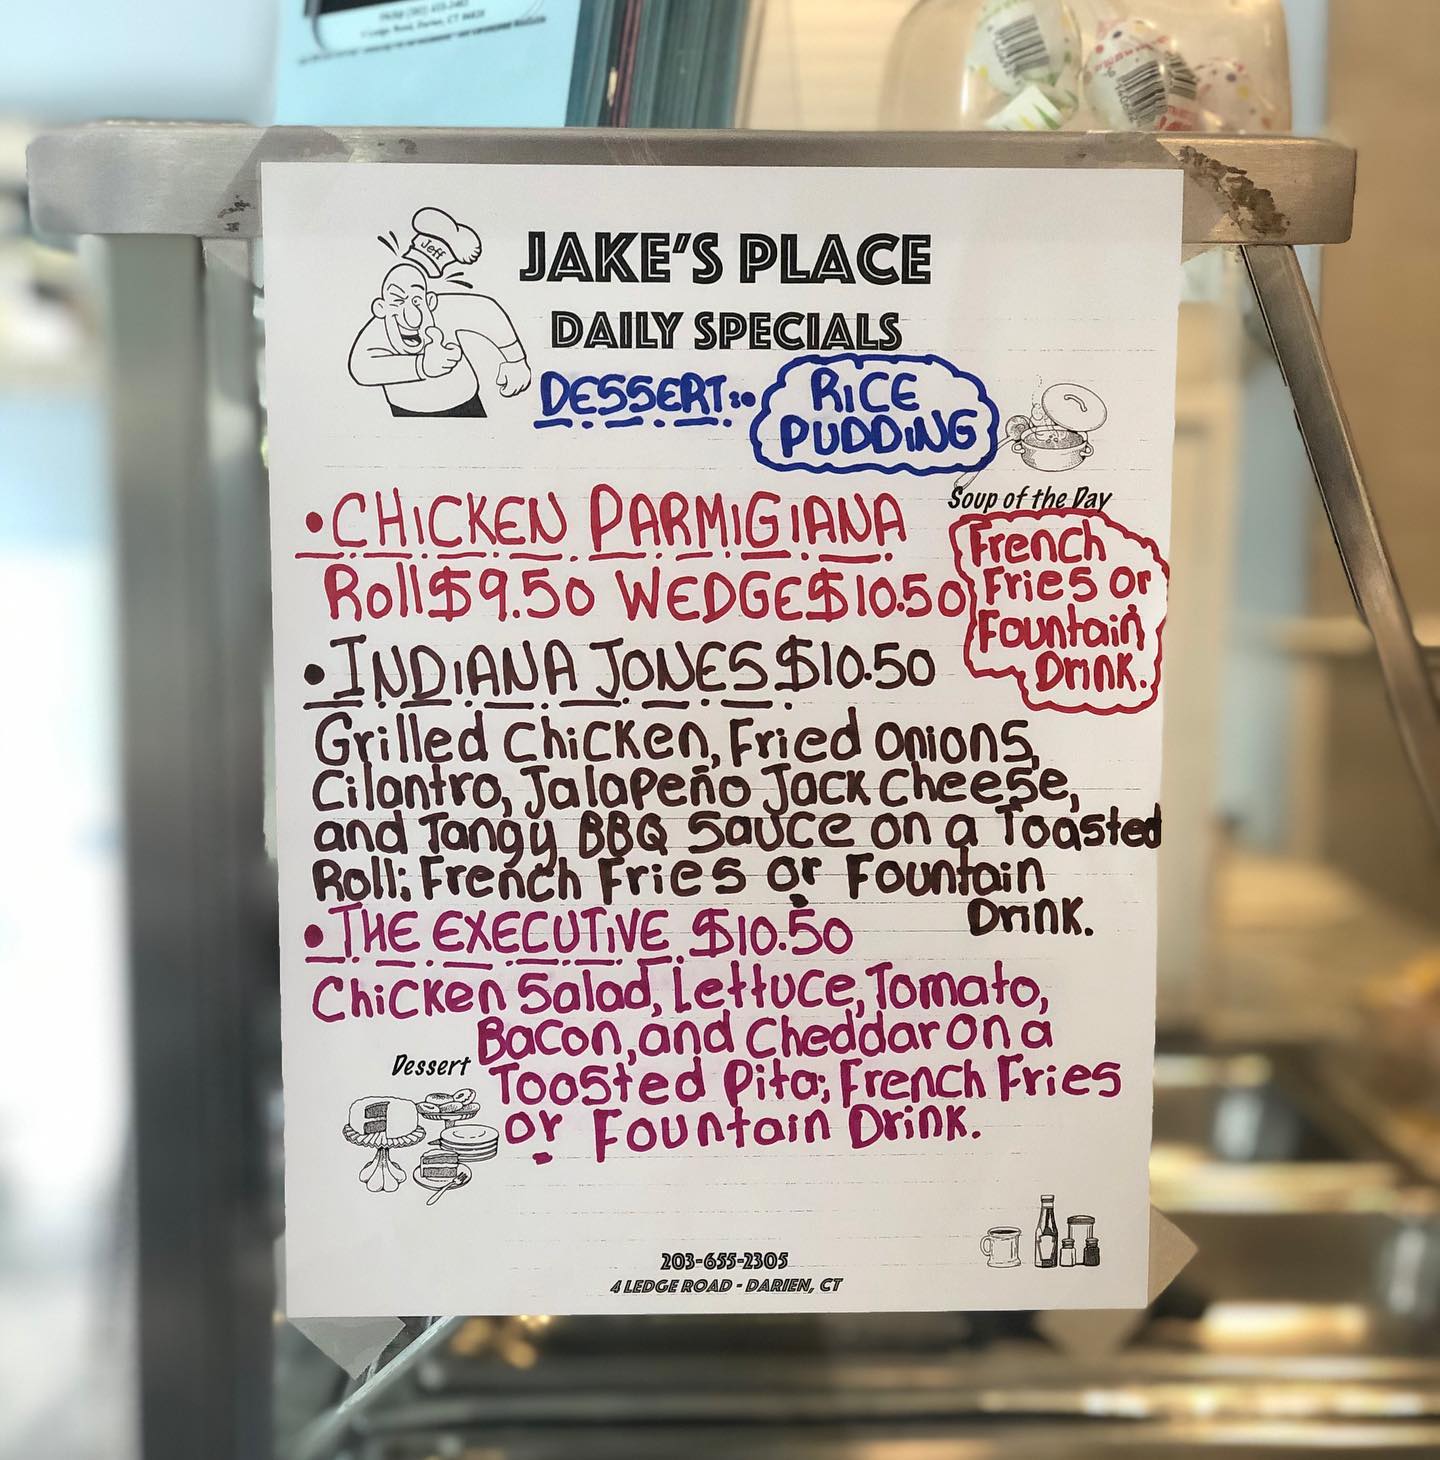 Jeff
JAKE'S PLACE
DAILY SPECIALS
DESSERT: RICE
PUDDING
Soup of the Day
• CHICKEN PARMIGIANA
Roll $9.50 WEDGE $10.50
French
Fries or
Fountain
Drink.
• INDIANA JONES $10.50
Grilled Chicken, Fried Onions,
Cilantro, Jalapeño Jack Cheese,
and Tangy BBQ Sauce on a Toasted
Roll; French Fries or Fountain
Drink.
• THE EXECUTIVE $10.50
Chicken Salad, Lettuce, Tomato,
Bacon, and Cheddar on a
Toasted Pita; French Fries
or Fountain Drink.
Dessert
203-655-2305
4 LEDGE ROAD - DARIEN, CT